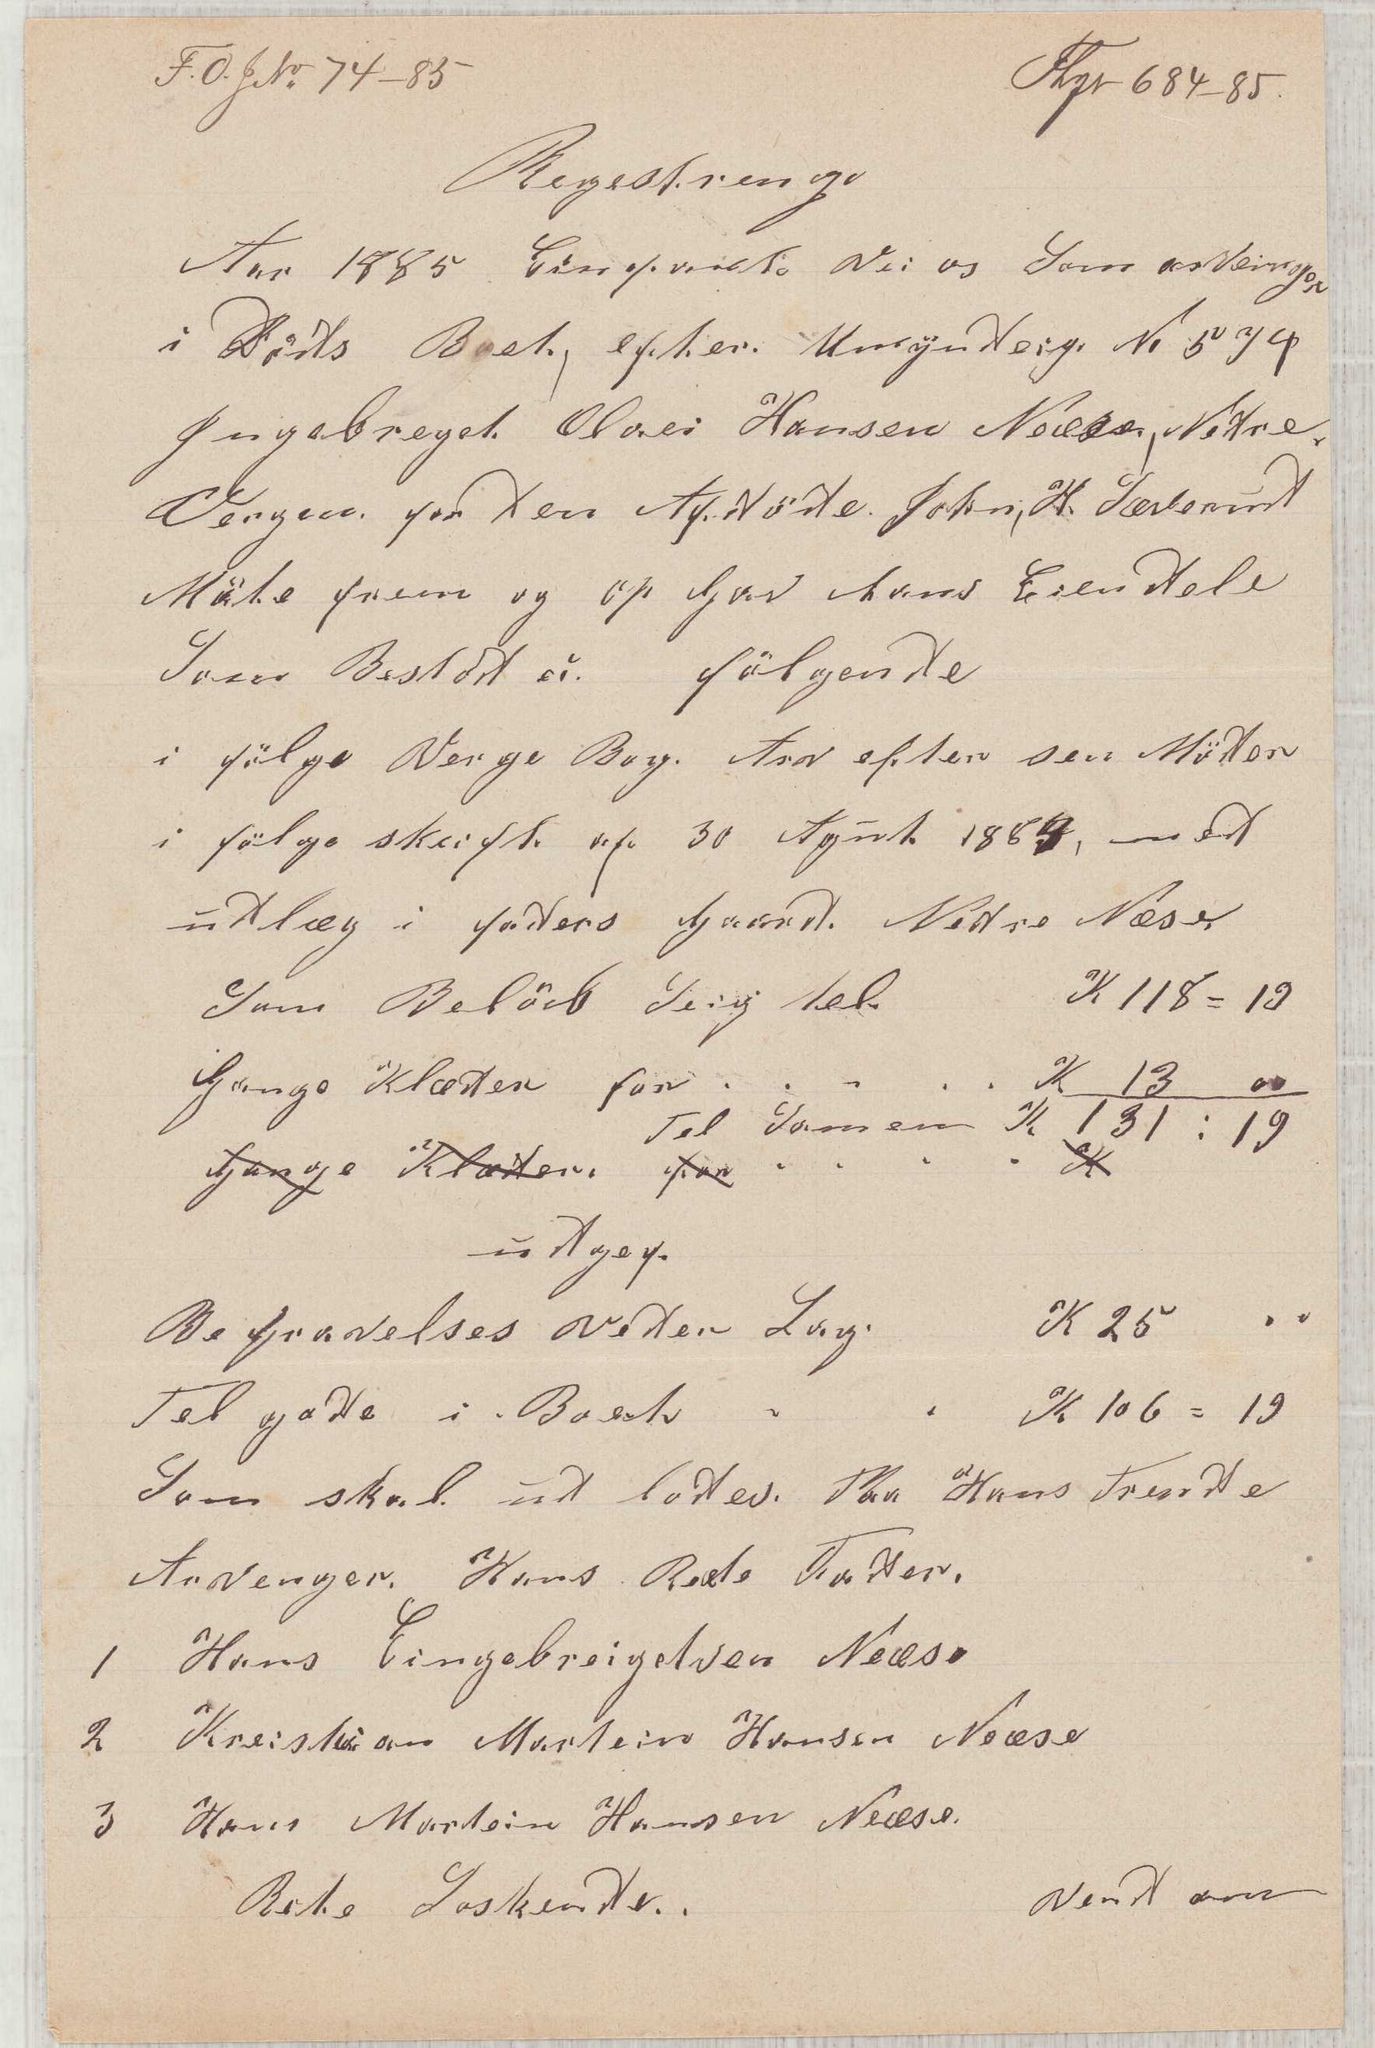 F. O. J No. 74-85
Thgr 684-85.
Regestreng
Aar 1885 Einfant Vei os Som arveinger
i Döds Boet, efter Umÿnderig No 574
Jngebreget Olaei Hansen Neæse, Nedre.
Vergen for den Afdöde John, H. Sæverud
Möte frem og op Gav hans Eiendele
Som Bestod ei følgende
i fölge Verge Bog. Arv efter sen Möder
i fölge skeift af 30 Agust 1884, med
udlæg i faders Gaard. Nedre Næse
Som Belöb Seig tel K 118=19
Gange Klæder for . . . . . K 13 00
Tel Samen K 131:19
Gange Klæder. for . . . . K
udgef.
Begravelses veder Lag. K 25 ..
Tel gode i Boeet . . K 106=19
Som skal ud lodes. Paa Hans Trende
Arvenger. Hans Rete Fader.
1 Hans Eingebreigetsen Neæse
2 Kreistian Martein Hansen Neæse
3 Hans Martein Hansen Neæse.
Rete Soskende.. vend om